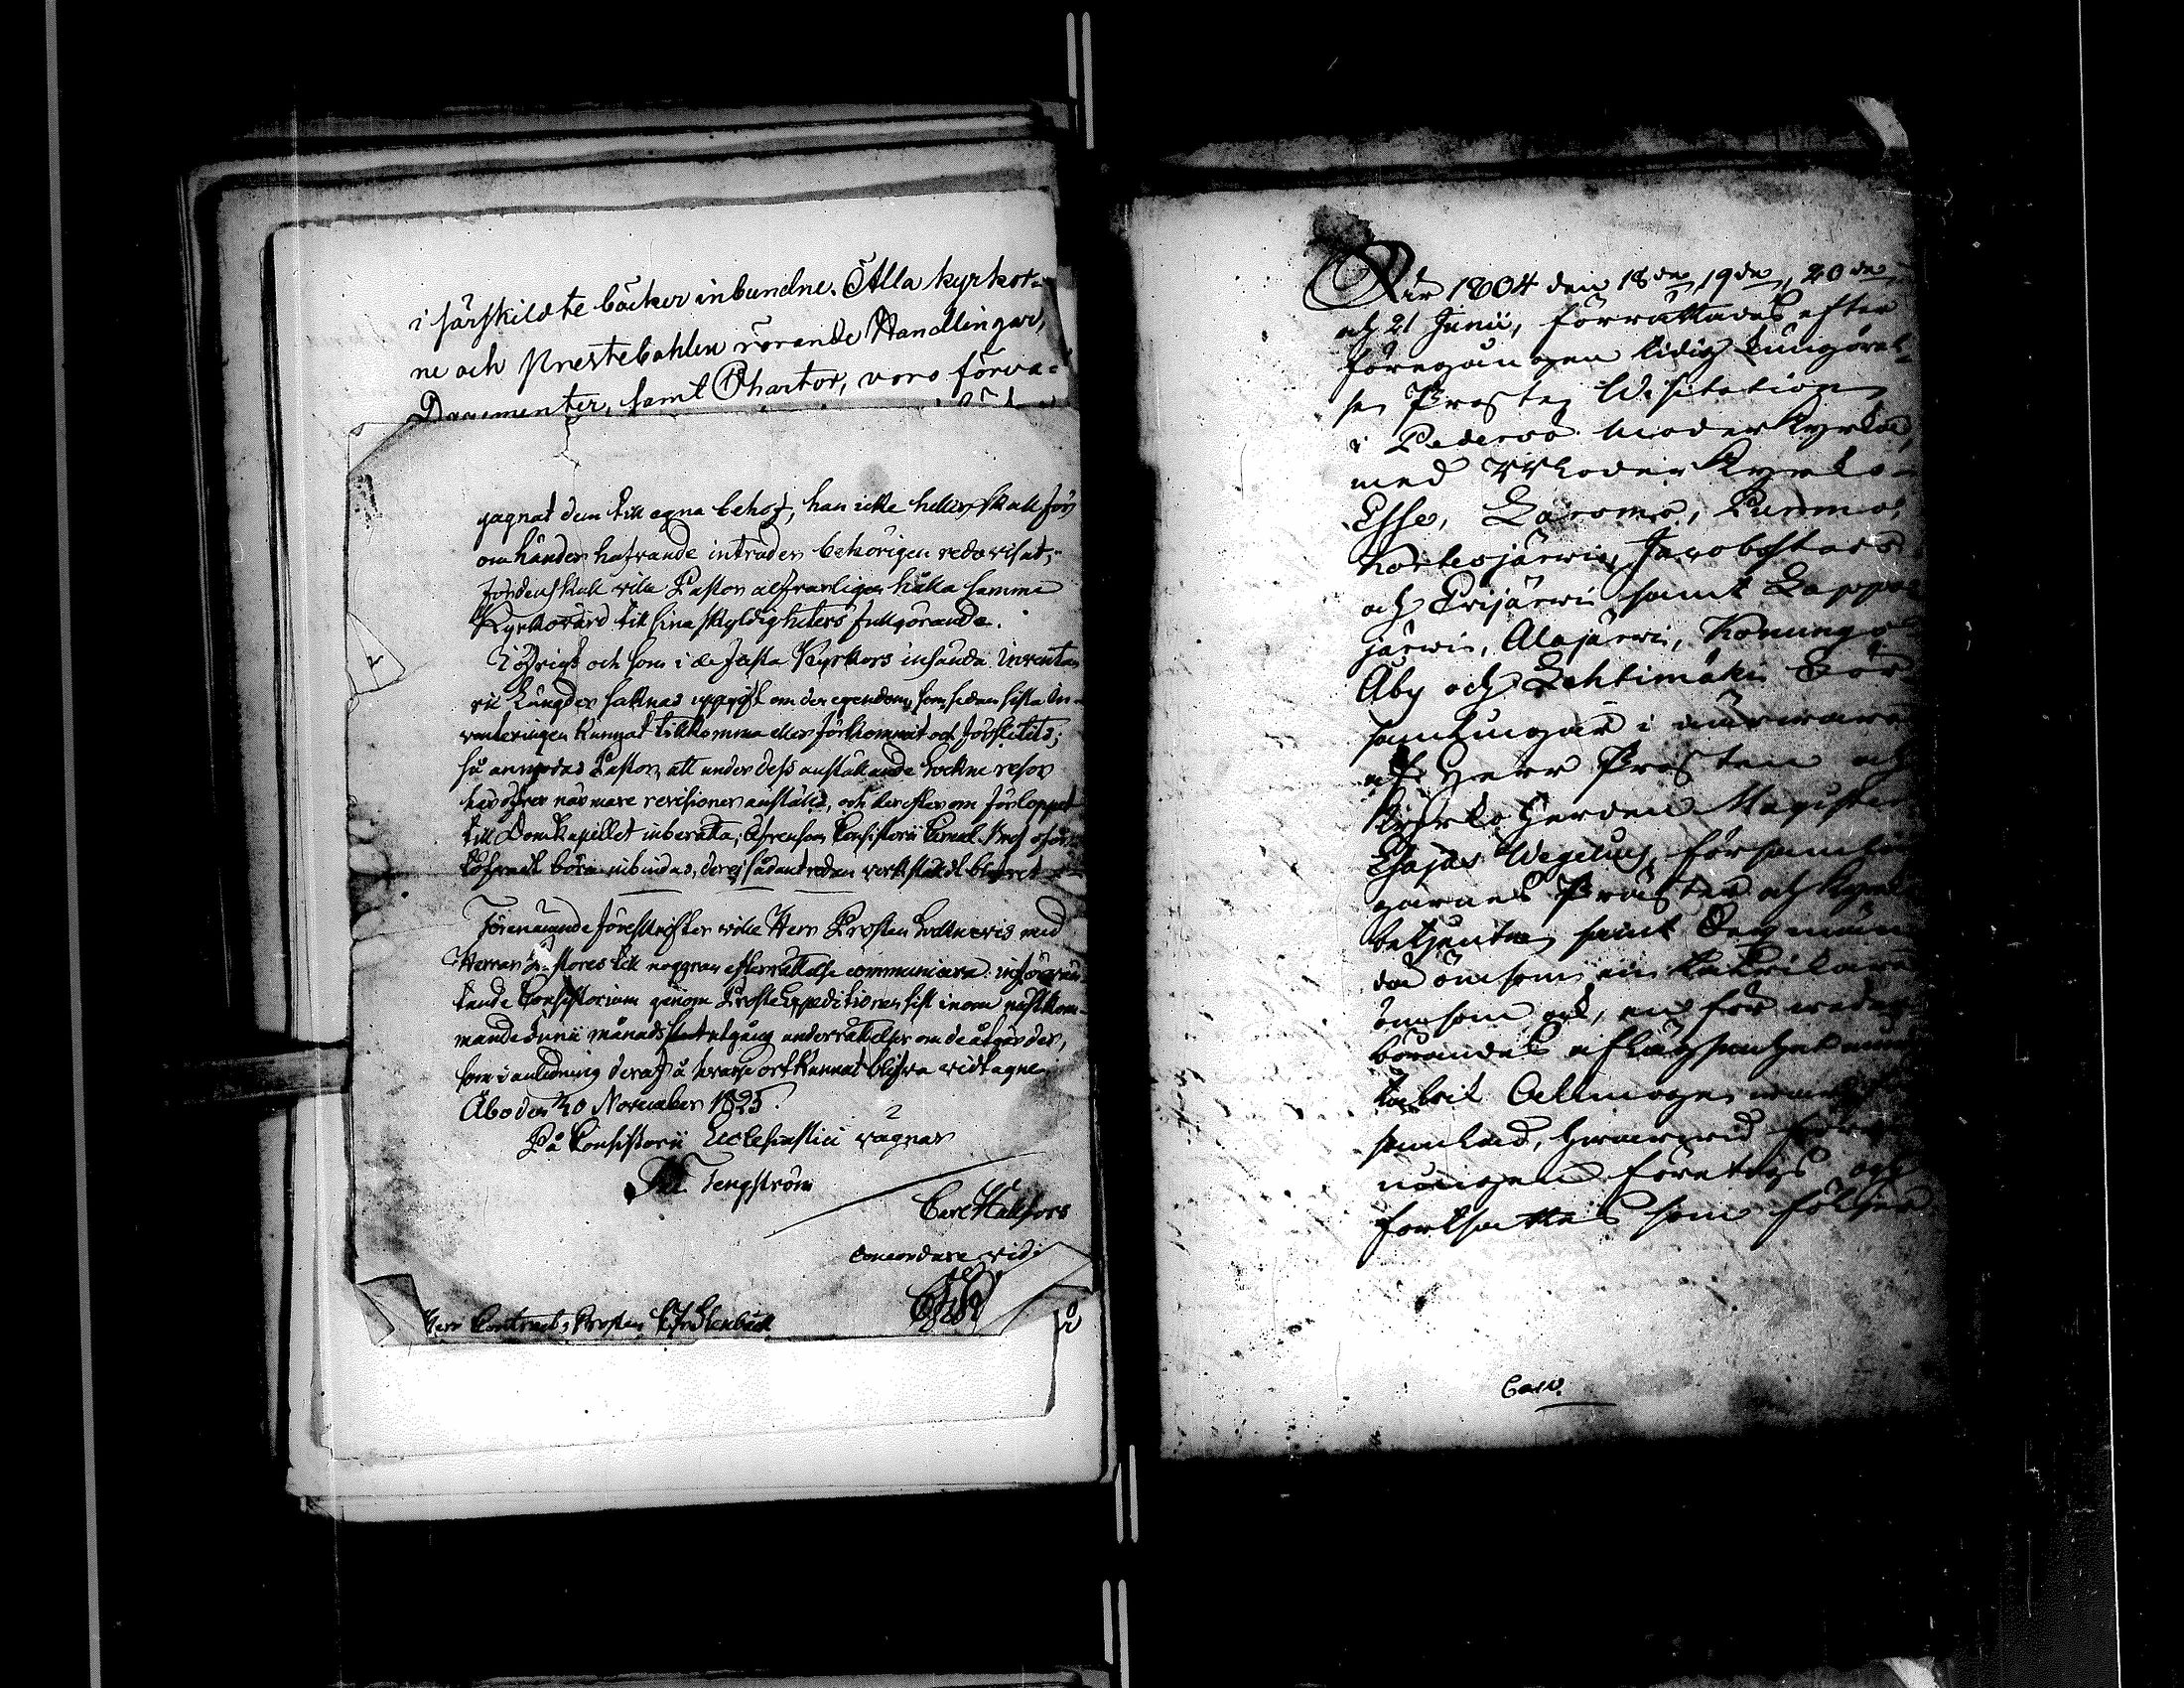 i särskildte böcker inbundne. Alla kyrkor-
ne och Prestebohlen rörande Handlingar,
Documenter, samt Chartor, voro förva-
gagnat dem till egna behof, han icke heller skall för
om händer hafvande intrader behörigen redovisat;
fördenskull ville Pastor alfvarligen hålla samme
Kyrkovärd till sina skyldigheters fullgörande.
I öfrigt och som i de flesta Kyrkors insända Inventa-
rii Längder saknas uppgift om den egendom, som sedan sista In-
venteringen kunnat tillkomma eller förkommit och förslitits;
så anmodas Pastor, att under dess anställande Sockne resor
häröfver närmare revisioner anställa, och derefter om förloppet
till Domkapitlet inberätta; äfvensom Consistorii
böra inbindas, der ej sådant redan verkstäldt blifvit
Förenämnde föreskrifter ville Herr Prosten med
Herrar Pastores till noggran efterrättelse communicera
tande Consistorium genom Proste Expeditionen sist inom nästkom-
mande Junii månads utgång underrättelse om de åtgärder,
som i anledning deraf å hvarje ort kunnat blifva vidtagne
Åbo den 30 November 1825.
På Consistorii Ecclesiastici vägnar
Tengström
Carl Hällfors
Concordare vidi
Herr Contracts Prosten
År 1804 den 18de, 19de, 20de
och 21 Junii, förrättades efter
föregången tidig kungörel-
sen Proste Visitation
i Pedersö Moderkyrka,
med Kyrko-
Esse, Larsmo, Purmo,
Kortesjärwi, Jacobstads
och Ewijärwi samt Lappa-
järwi, Alajärwi, Konungs
Åby och Lehtimäki För-
samlingar i närwaro
af Herr Prosten och
Kyrko Herden Magister
Esajas Wegelius, församlin-
garnes Präster och Kyrko
betjente, samt
omsom en talrikare
omsom ock, en för
aflägsenhet
talrik Allmoge,
samlad, hwarwid förrätt-
ningen företogs och
fortsattes som följer